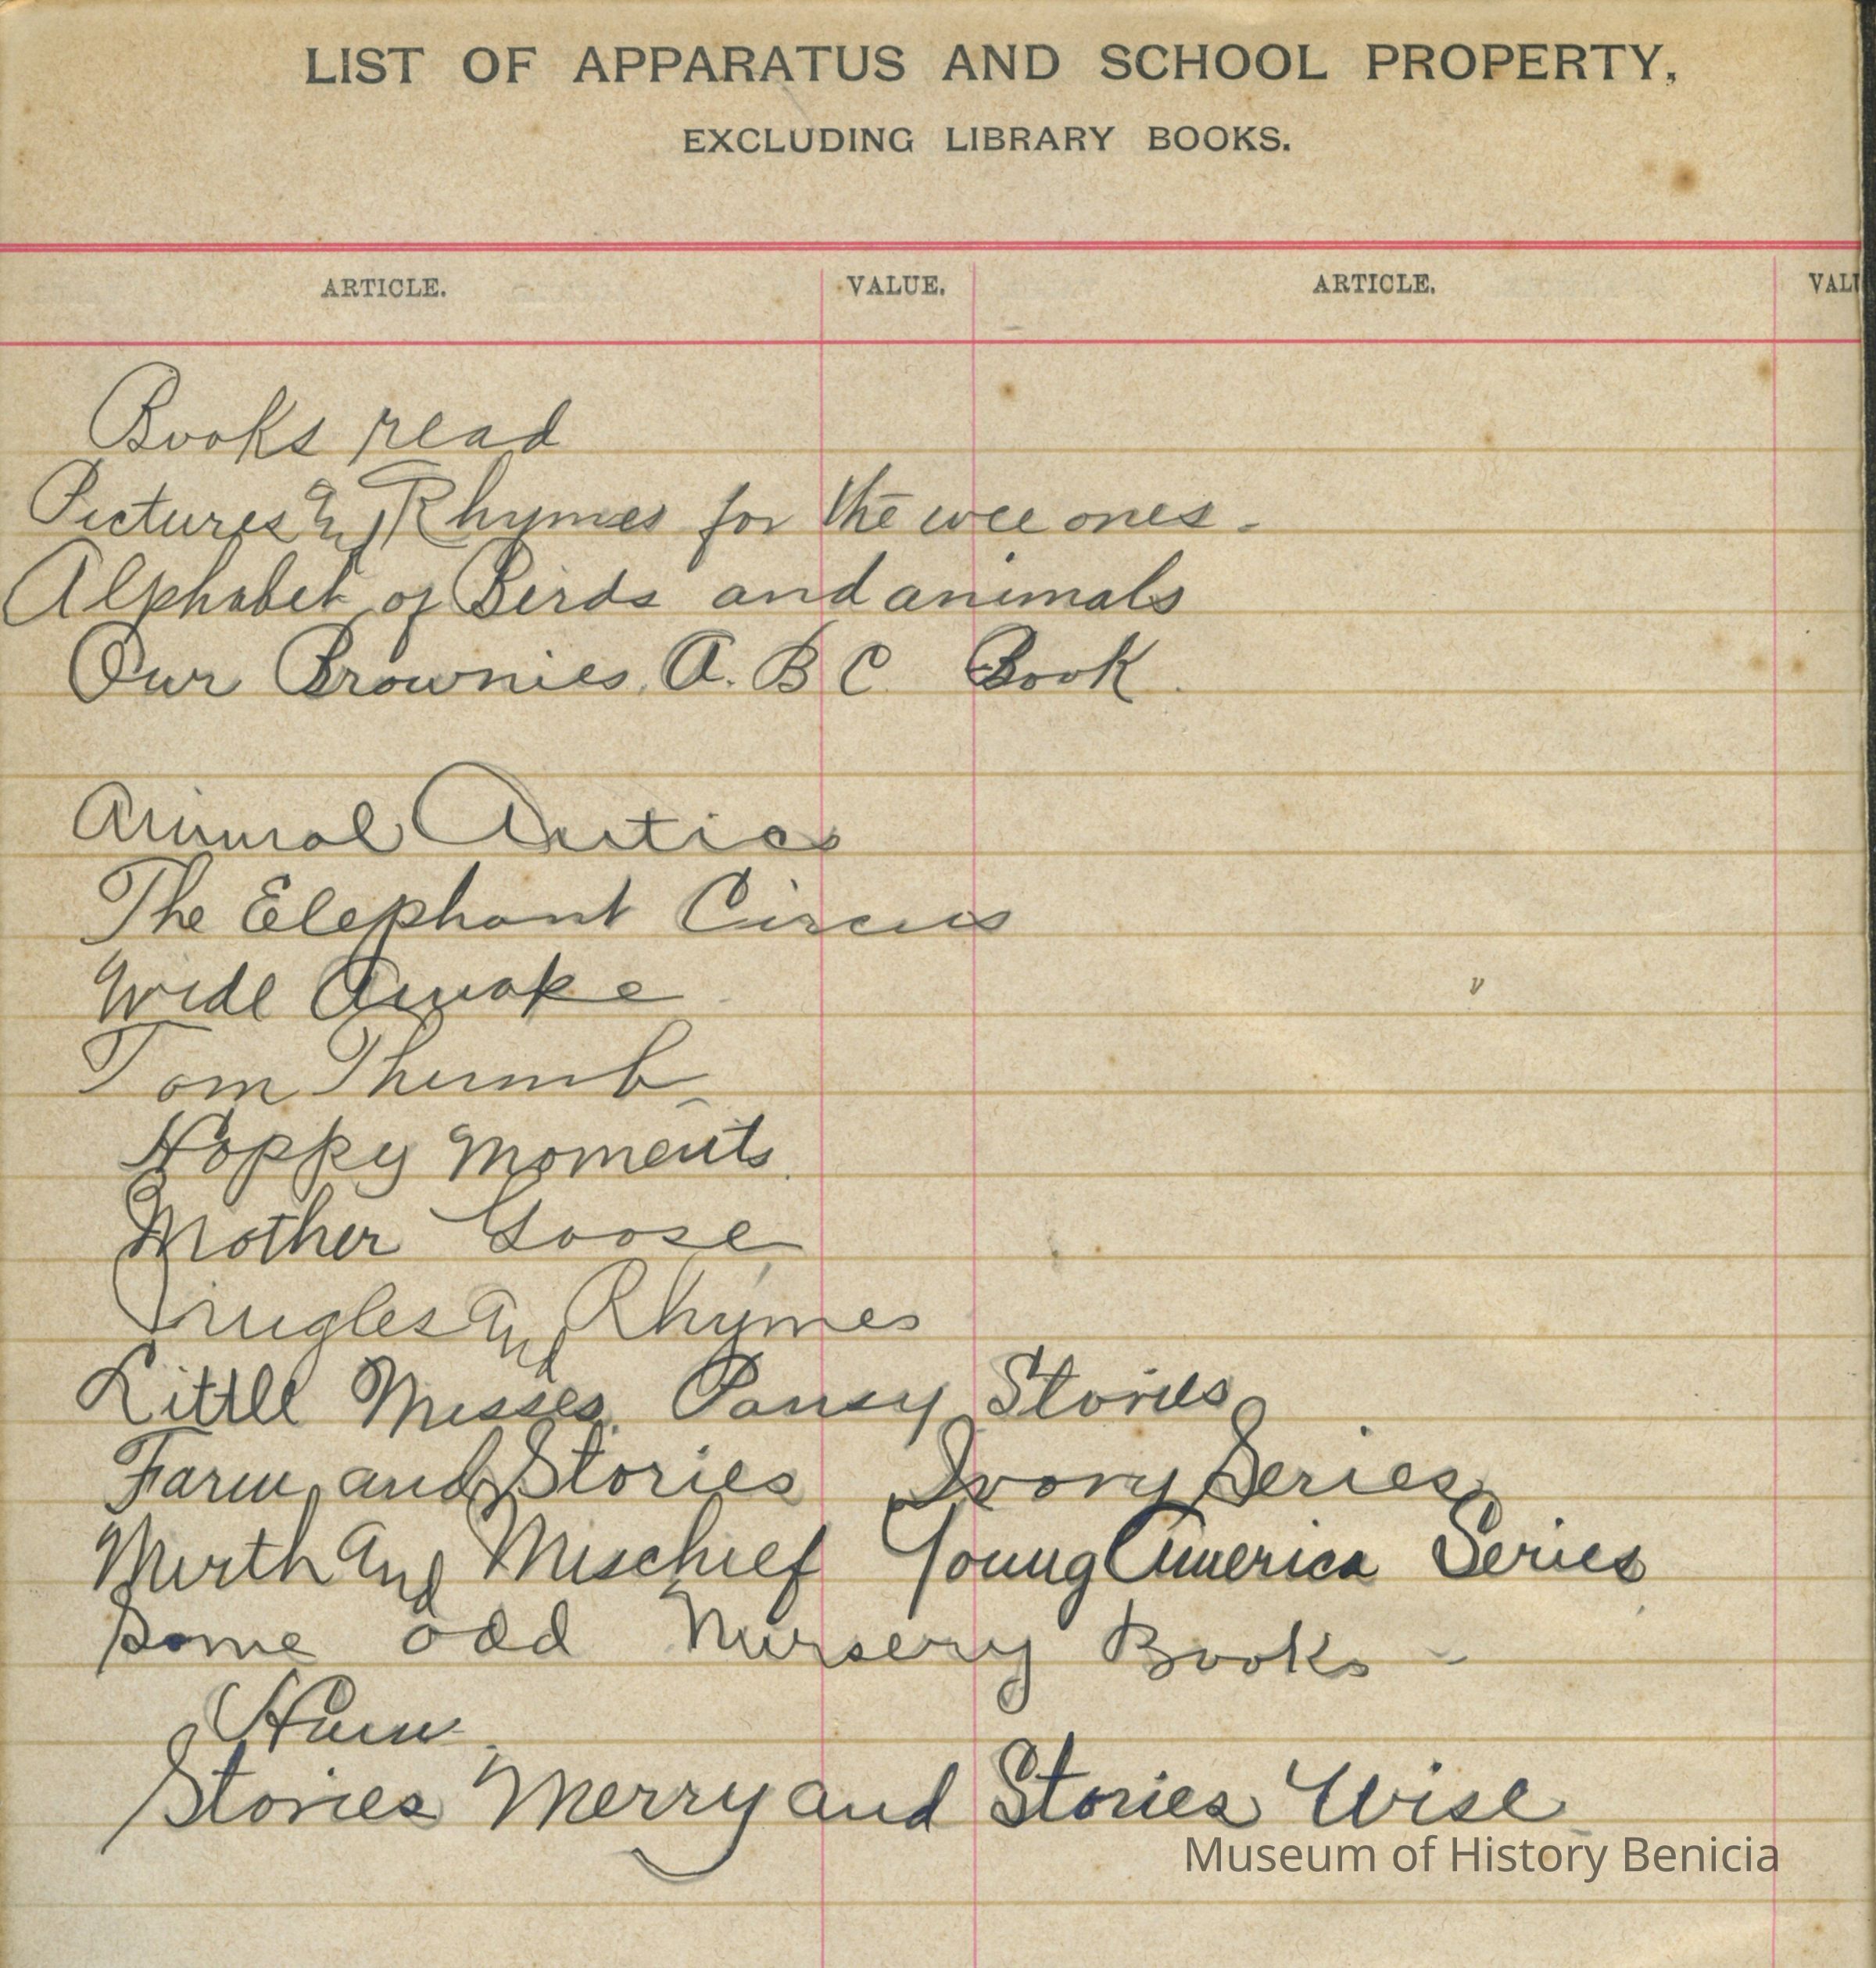 LIST OF APPARATUS AND SCHOOL PROPERTY,
EXCLUDING LIBRARY BOOKS.
ARTICLE. VALUE. ARTICLE. VALU
Books read
Pictures and Rhymes for the wee ones.
Alphabet of Birds and animals
Our Brownies A. B C Book.
Animal Antics
The Elephant Circus
Wide Awake
Tom Thumb
Happy Moments.
Mother Goose
and Rhymes
Little Misses. Pansy Stories
Farm and Stories Ivory Series
Mirth and Mischief Young America Series
Some odd Nursery Books -
Stories Merry and Stories Wise
Museum of History Benicia